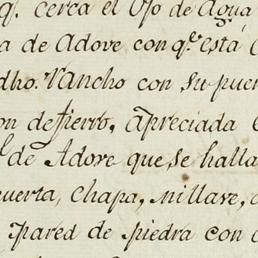 q.e cerca el Ojo de Agua
a de Adove con q.e está
dho. Rancho con su puer
on de fierro, apreciada
l de Adove que se halla
uerta, chapa, ni llave,
Pared de piedra con